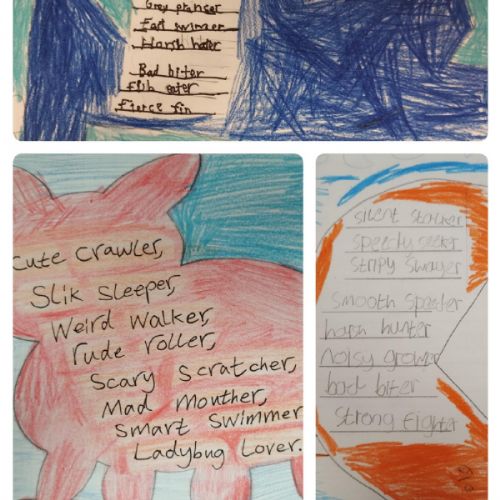 Grey prancer
Fast swimmer
Harsh hater
Bad biter
Fish eater
Fierce fin
Cute Crawler,
Slik Sleeper,
Weird Walker,
rude roller,
Scary Scratcher,
Mad Mouther,
Smart Swimmer
Ladybug Lover.
silent stalker
speedy seeker
stripy swayer
smooth
harsh hunter
noisy grower
bad biter
strong fighter